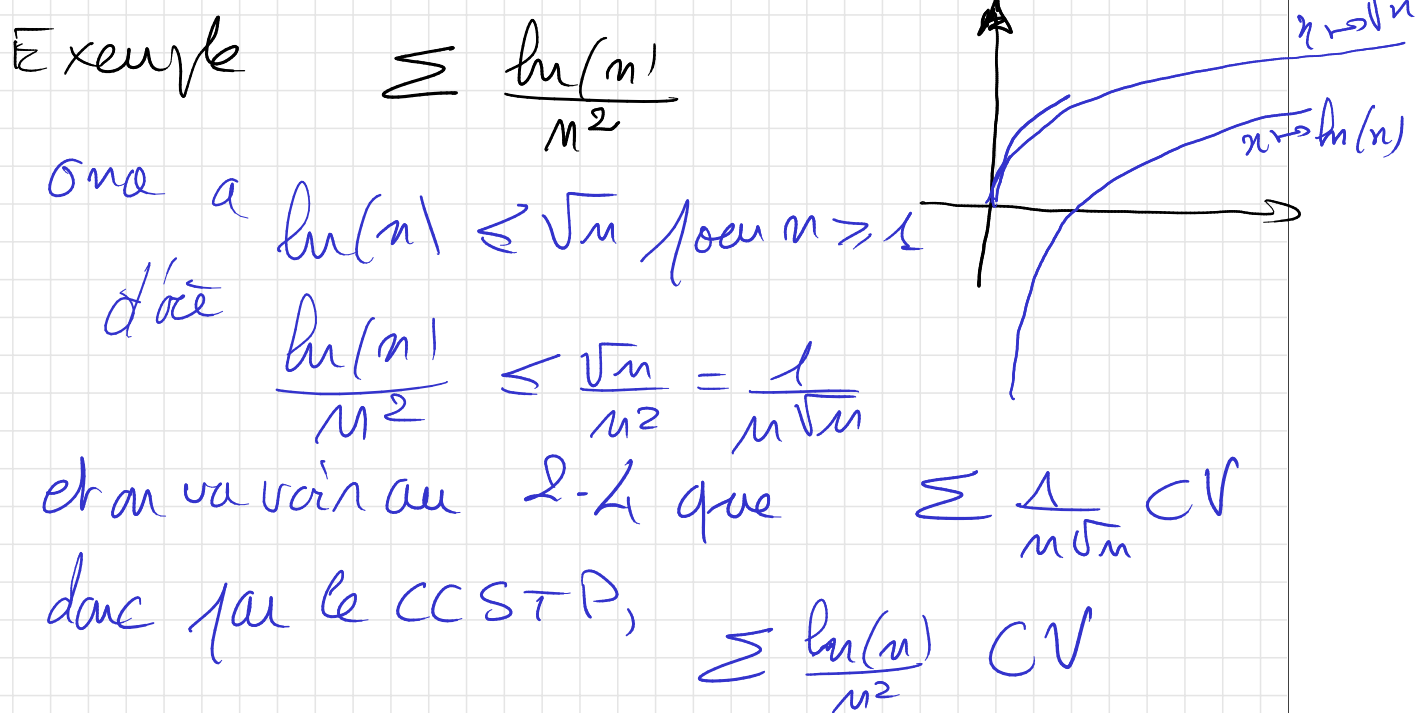 Exemple ∑ ln(n)/n²
x ↦ √x
x ↦ ln(x)
on a a ln(n) ≤ √n pour n ≥ 1
d'où ln(n)/n² ≤ √n/n² = 1/(n√n)
et on va voir au 2-4 que ∑ 1/(n√n) CV
donc par le CCSTP, ∑ ln(n)/n² CV